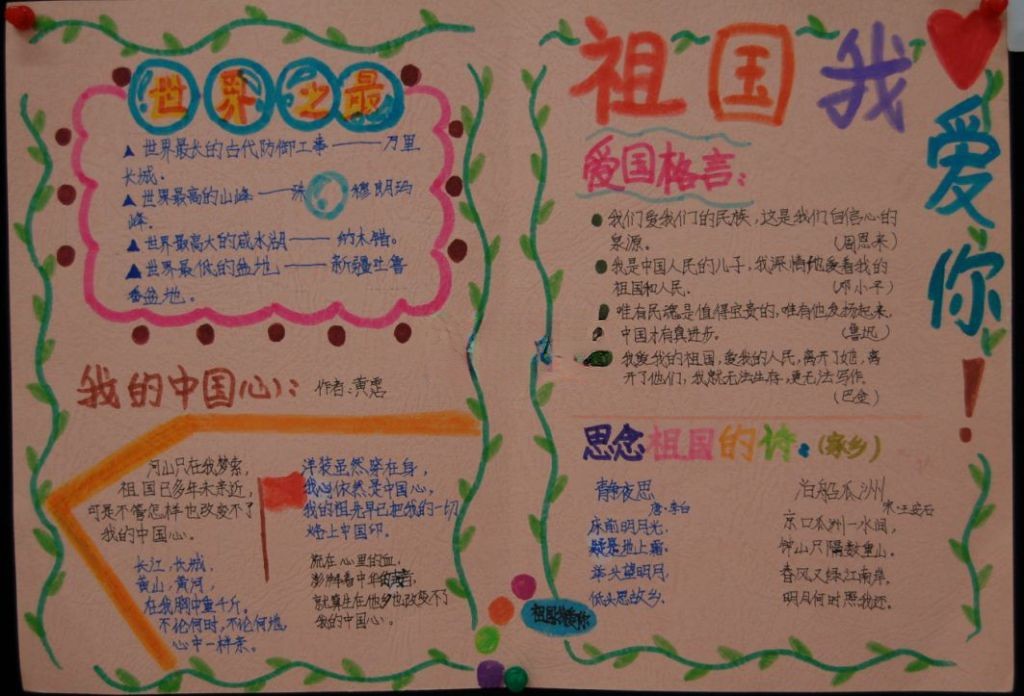 世界之最
▲世界最长的古代防御工事——万里
长城.
▲世界最高的山峰——珠穆朗玛
峰.
▲世界最高大的咸水湖——纳木错。
▲世界最低的盆地——新疆吐鲁
番盆地.
我的中国心: 作者:黄霑
河山只在我梦索,
祖国已多年未亲近,
可是不管怎样也改变不了
我的中国心.
长江,长城,
黄山,黄河,
在我胸中重千斤。
不论何时,不论何地,
心中一样亲。
洋装虽然穿在身,
我心依然是中国心,
我的祖先早已把我的一切
烙上中国印.
流在心里的血,
澎湃着中华的声音,
就算生在他乡也改变不了
我的中国心。
祖国我爱你!
爱国格言:
我们爱我们的民族,这是我们自信心的
泉源。 (周恩来)
我是中国人民的儿子,我深情地爱着我的
祖国和人民. (邓小平)
唯有民魂是值得宝贵的,唯有他发扬起来,
中国才有真进步。 (鲁迅)
我爱我的祖国,爱我的人民,离开了她,离
开了他们,我就无法生存,更无法写作.
(巴金)
思念祖国的诗:(家乡)
静夜思
唐·李白
床前明月光,
疑是地上霜.
举头望明月,
低头思故乡.
泊船瓜洲
宋·王安石
京口瓜洲一水间,
钟山只隔数重山.
春风又绿江南岸,
明月何时照我还.
祖国我爱你